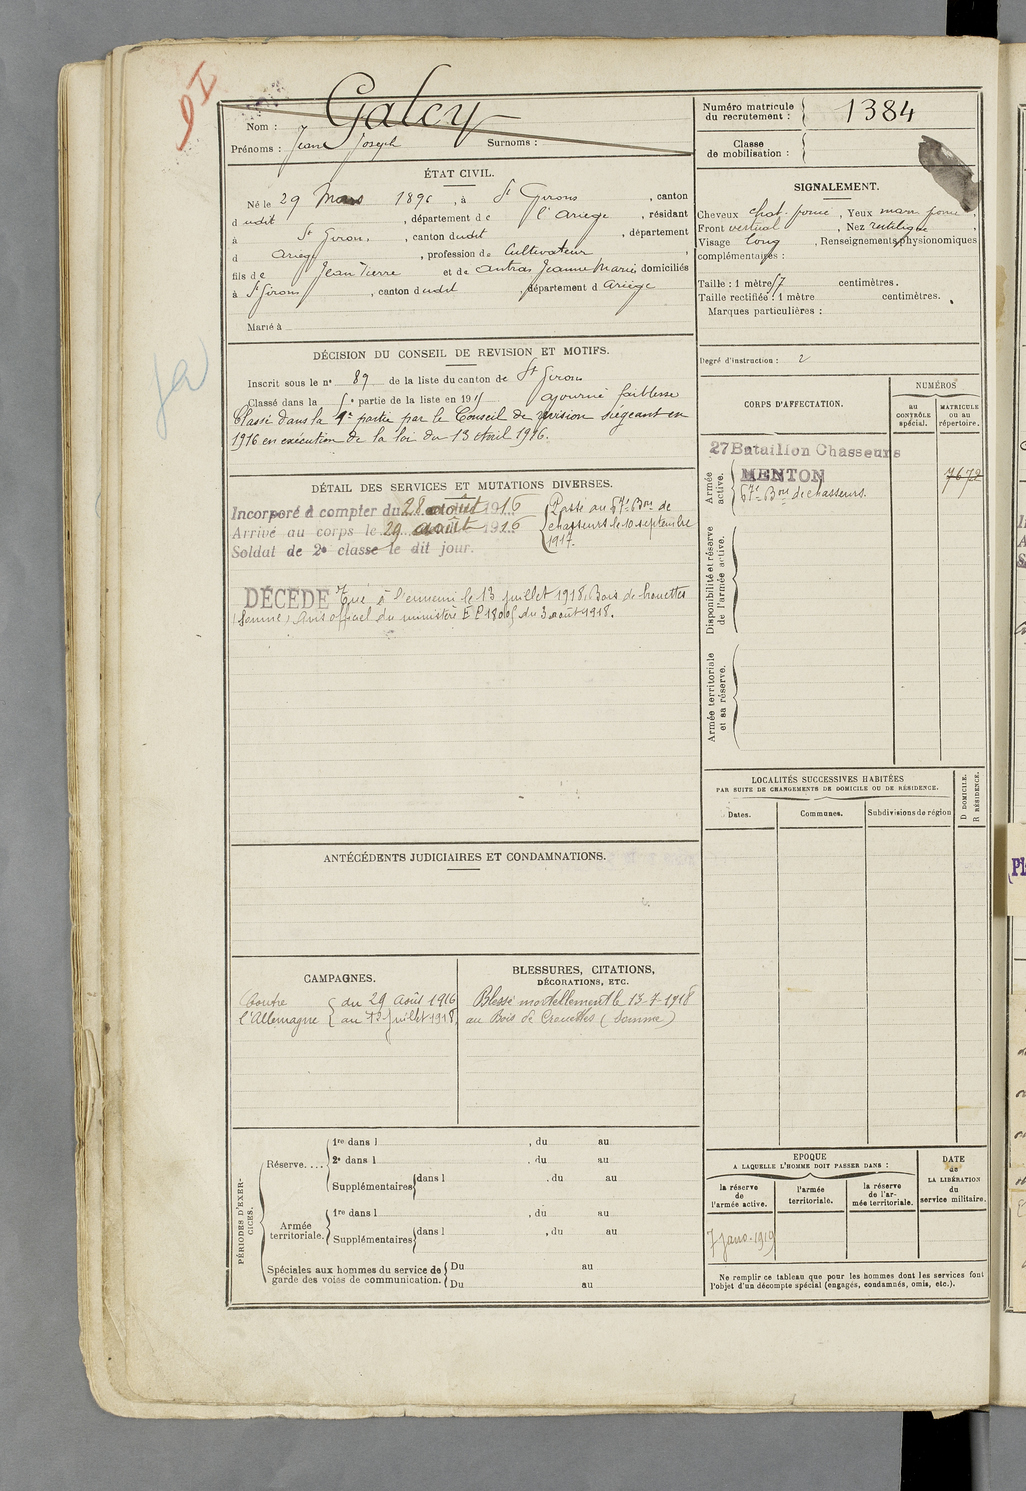 Nom : Galcy
Prénoms : Jean Joseph Surnoms :
Numéro matricule du recrutement : 1384
Classe de mobilisation :
ÉTAT CIVIL.
Né le 29 Mars 1896, à St Girons, canton
dudit, département de l'Ariège, résidant
à St Girons, canton dudit, département
d Ariège, profession de Cultivateur
fils de Jean Pierre et de Antras Jeanne Marie domiciliés
à St Girons, canton dudit, département d Ariège
Marié à
SIGNALEMENT.
Cheveux chat. foncé, Yeux marr foncé,
Front vertical, Nez rectiligne
Visage long, Renseignements physionomiques
complémentaires :
Taille : 1 mètre 57 centimètres.
Taille rectifiée : 1 mètre centimètres.
Marques particulières :
Degré d'instruction : 2
DÉCISION DU CONSEIL DE REVISION ET MOTIFS.
Inscrit sous le n° 89 de la liste du canton de St Girons
Classé dans la 5e partie de la liste en 1915 ajourné faiblesse
Classé dans la 1e partie par le Conseil de révision siégeant en
1916 en exécution de la loi du 13 Avril 1916.
DÉTAIL DES SERVICES ET MUTATIONS DIVERSES.
Incorporé à compter du 28 août 1916
Arrivé au corps le 29 août 1916
Soldat de 2e classe le dit jour.
Passé au 67e Bon de
chasseurs le 10 septembre
1917.
DÉCÉDÉ Tué à l'ennemi le 13 juillet 1918 Bois de
(Somme) Avis officiel du ministère du 3 août 1918.
CORPS D'AFFECTATION.
NUMÉROS
au CONTRÔLE spécial.
MATRICULE ou au répertoire.
Armée active.
27 Bataillon Chasseurs
MENTON
67e Bon de chasseurs.
7672
Disponibilité et réserve de l'armée active.
Armée territoriale et sa réserve.
LOCALITÉS SUCCESSIVES HABITÉES
PAR SUITE DE CHANGEMENTS DE DOMICILE OU DE RÉSIDENCE.
Dates.
Communes.
Subdivisions de région
D DOMICILE.
R RÉSIDENCE.
ANTÉCÉDENTS JUDICIAIRES ET CONDAMNATIONS.
CAMPAGNES.
Contre l'Allemagne
du 29 Août 1916
au 13 juillet 1918
BLESSURES, CITATIONS,
DÉCORATIONS, ETC.
Blessé mortellement le 13-7-1918
au Bois de (Somme)
PÉRIODES D'EXERCICES.
Réserve....
1re dans l , du au
2e dans l , du au
Supplémentaires dans l , du au
Armée territoriale.
1re dans l , du au
Supplémentaires dans l , du au
Spéciales aux hommes du service de garde des voies de communication.
Du au
Du au
EPOQUE
A LAQUELLE L'HOMME DOIT PASSER DANS :
la réserve de l'armée active.
l'armée territoriale.
la réserve de l'armée territoriale.
DATE de LA LIBÉRATION du service militaire.
Ne remplir ce tableau que pour les hommes dont les services font
l'objet d'un décompte spécial (engagés, condamnés, omis, etc.).